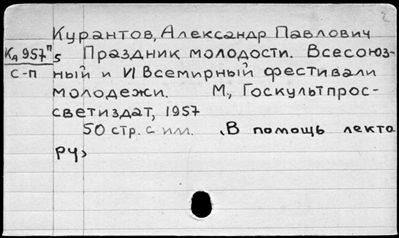 Курантов, Александр Павлович
Ка957п5 Праздник молодости. Всесоюз-
с-п ный и VI Всемирный фестивали
молодежи. М., Госкультпрос-
светиздат, 1957
50 стр. с ил. „В помощь лекто
ру“